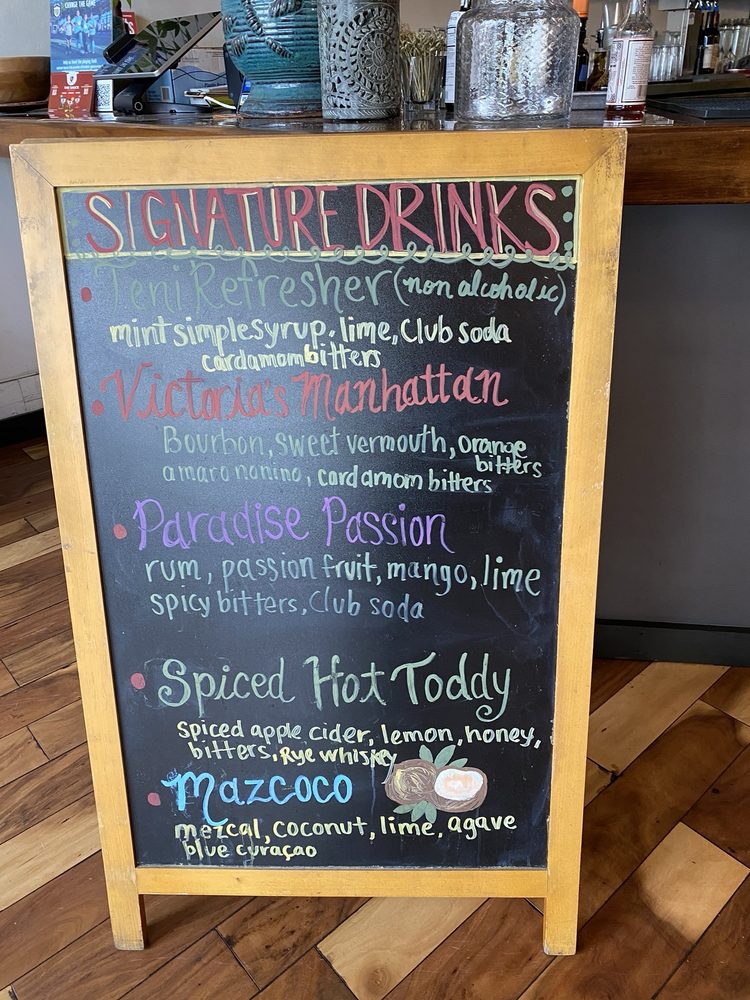 CHANGE THE GAME
SIGNATURE DRINKS
Teni Refresher (non alcoholic)
mint simple syrup, lime, Club soda
cardamom bitters
Victoria's Manhattan
Bourbon, sweet vermouth, orange
bitters
amaro nonino, cardamom bitters
Paradise Passion
rum, passion fruit, mango, lime
spicy bitters, Club soda
Spiced Hot Toddy
Spiced apple cider, lemon, honey,
bitters, Rye whiskey
Mazcoco
mezcal, coconut, lime, agave
blue curaçao